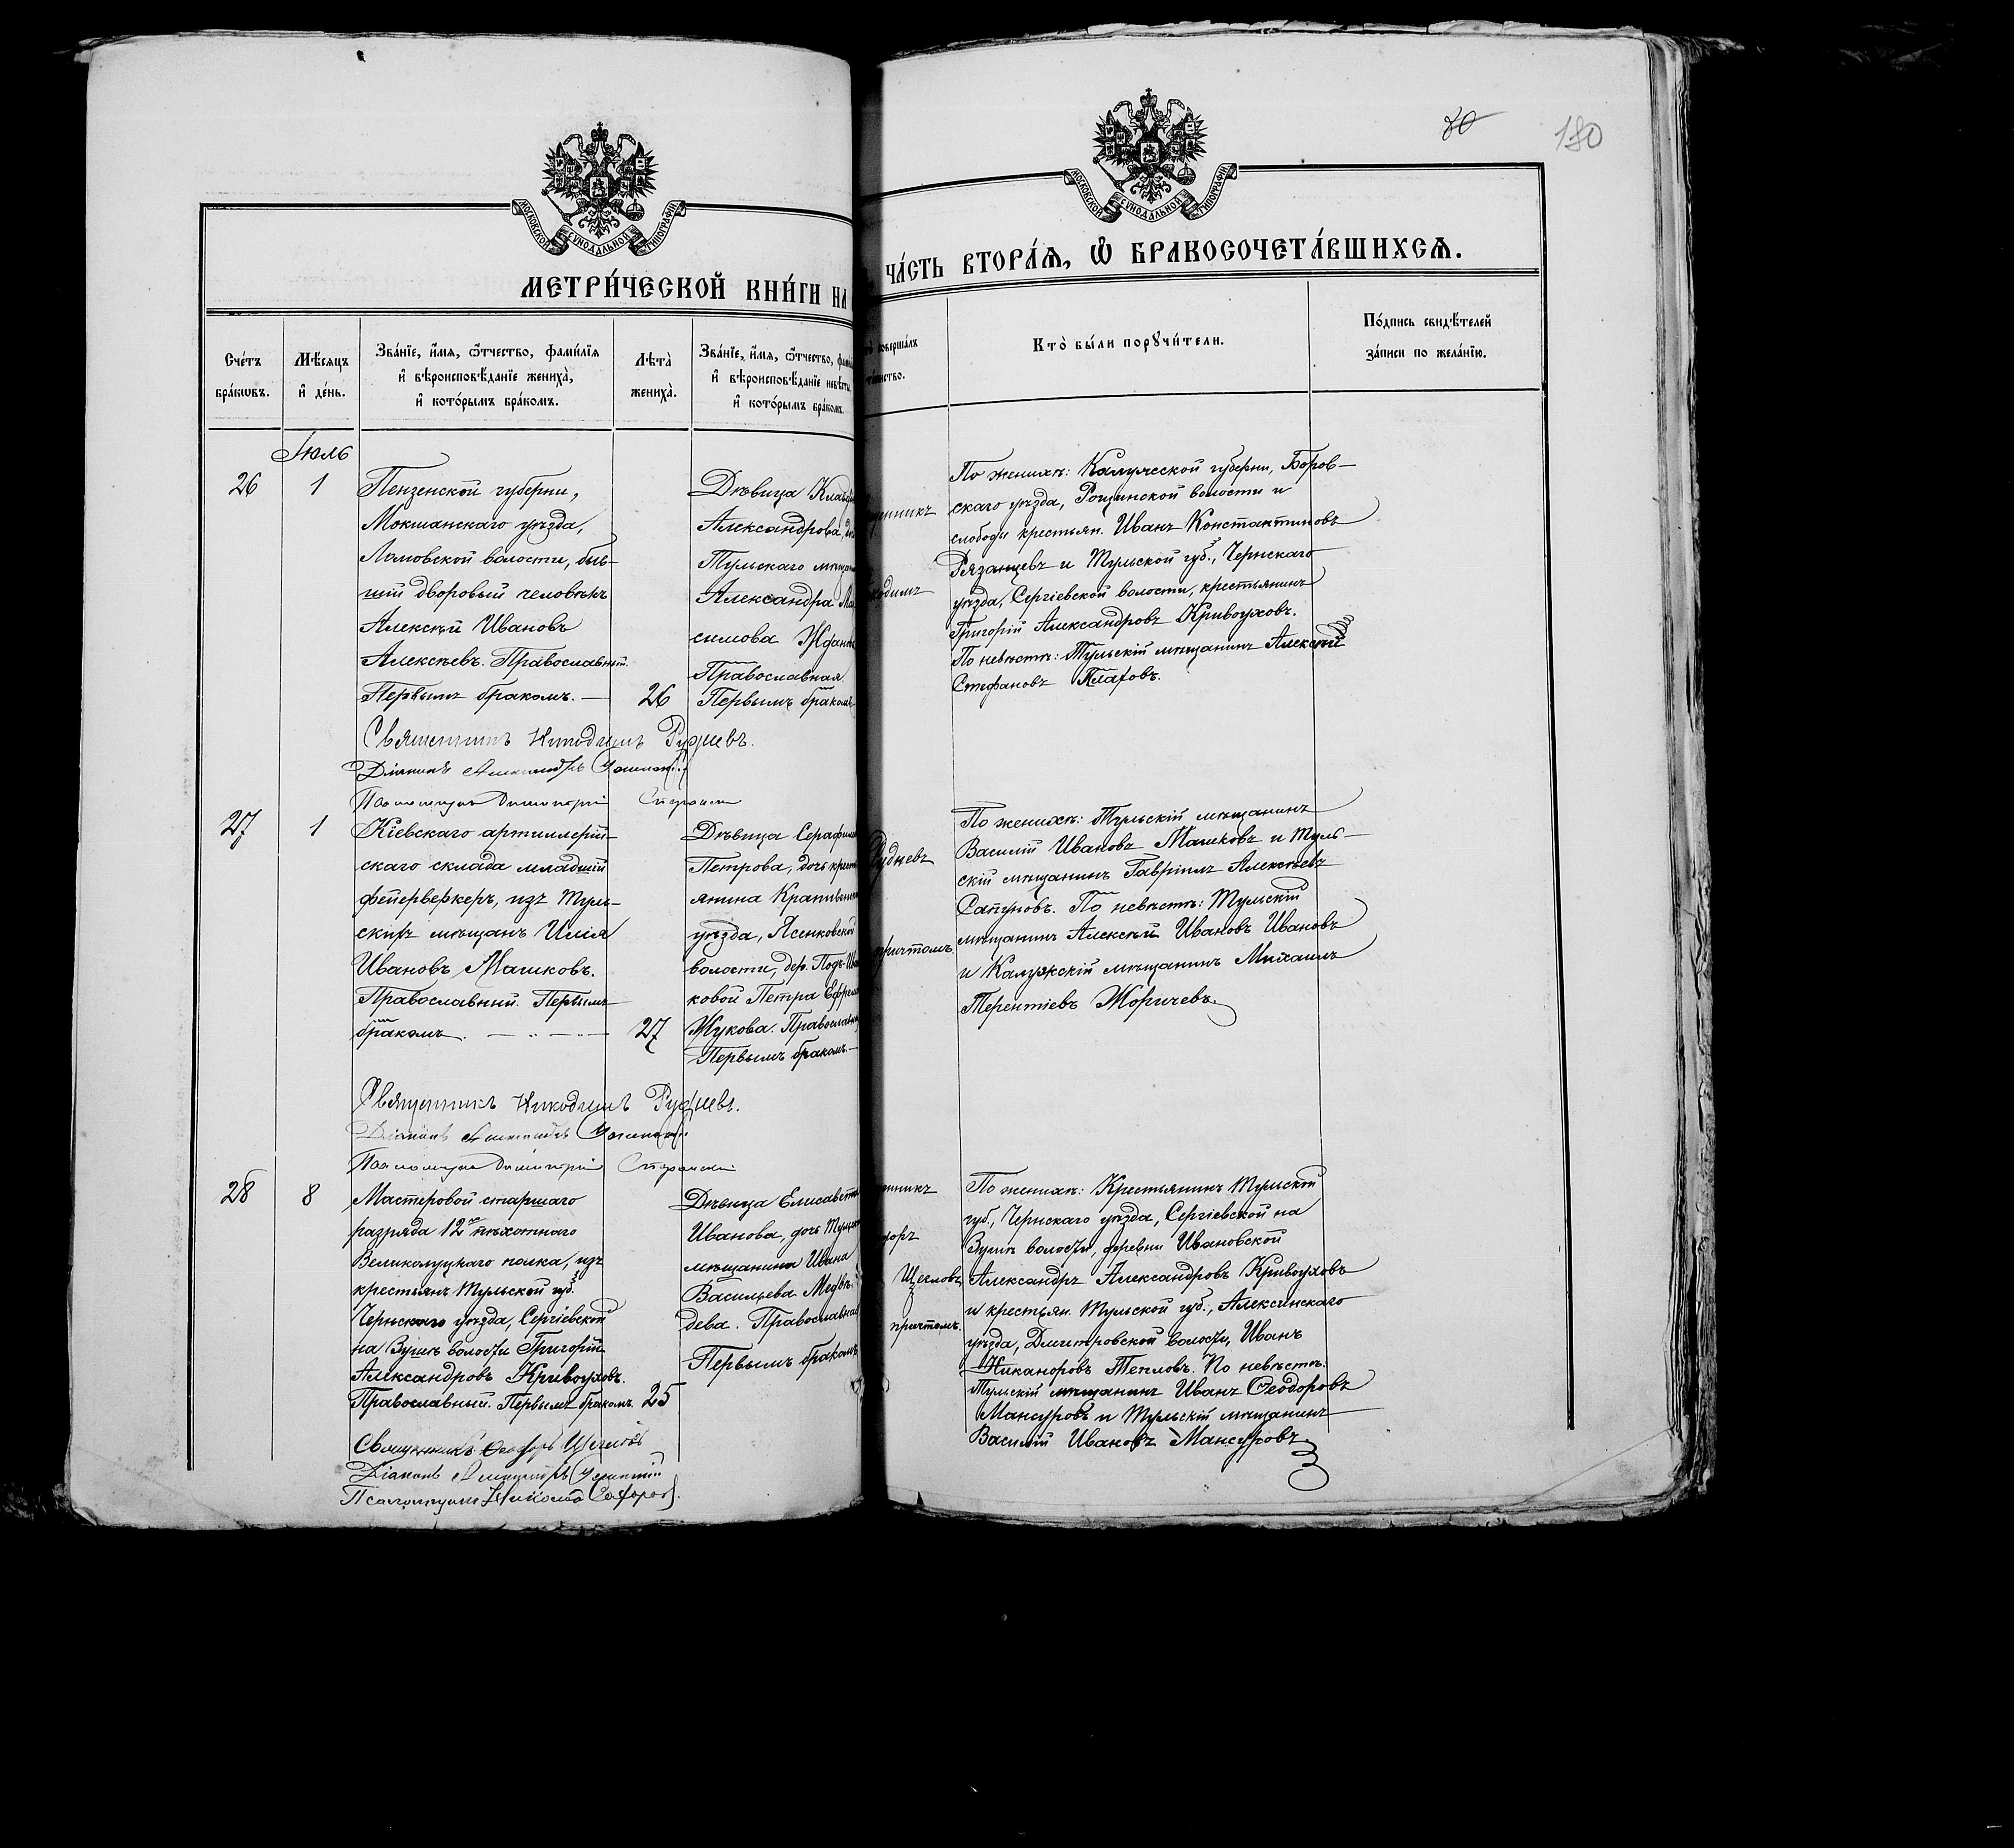 80
180
МОСКОВСКОЙ СѴНОДАЛЬНОЙ ТИПОГРАФІИ
МОСКОВСКОЙ СѴНОДАЛЬНОЙ ТИПОГРАФІИ
МЕТРИ́ЧЕСКОЙ КНИ́ГИ НА
ЧА́СТЬ ВТОРА́Ѧ, Ѡ҆ БРАКОСОЧЕТА́ВШИХСѦ.
Сче́тъ
бра́кѡвъ.
Мѣ́сяцъ
и҆ де́нь.
Зва́нїе, и҆́мѧ, ѻ҆́тчество, фами́лїѧ
и҆ вѣроисповѣ́данїе жениха̀,
и҆ кото́рымъ бра́комъ.
Лѣ́та̀
жениха̀.
Зва́нїе, и҆́мѧ, ѻ҆́тчество,
и҆ вѣроисповѣ́данїе
и҆ кото́рымъ бра́комъ.
Кто̀ бы́ли порꙋчи́тели.
По́дпись свидѣ́телей
за́писи по жела́нїю.
Іюль
26
1
Пензенской губерни,
Мокшанскаго уѣзда,
Ломовской волости, быв-
шій дворовый человѣкъ
Алексѣй Ивановъ
Алексѣевъ. Православный.
Первымъ бракомъ. —
26
Дѣвица
Александрова,
Тульскаго
Александра Мак
симова
Православная.
Первымъ бракомъ
По женихѣ: Калужской губерни, Боров-
скаго уѣзда, Рощинской волости и
слободы крестьян. Иванъ Константиновъ
Рязанцевъ и Тульской губ., Чернскаго
уѣзда, Сергіевской волости, крестьянинъ
Григорій Александровъ Кривоуховъ.
По невѣстѣ: Тульскій мѣщанинъ Алексѣй
Стефановъ
Священникъ Никодимъ Рудневъ.
Діаконъ Александръ
Псаломщикъ Димитрій
27
1
Кіевскаго артиллерій-
скаго склада младшій
фейерверкеръ, изъ Туль-
скихъ мѣщанъ Илія
Ивановъ Машковъ.
Православный. Первымъ
бракомъ.
27
Дѣвица
Петрова, дочь
янина
уѣзда, Ясенковской
волости, дер.
ковой Петра
Жукова.
Первымъ бракомъ. —
Рудневъ
причтомъ.
По женихѣ: Тульскій мѣщанинъ
Василій Ивановъ Машковъ и Туль-
скій мѣщанинъ Гавріилъ Алексѣевъ
Сапуновъ. По невѣстѣ: Тульскій
мѣщанинъ Алексѣй Ивановъ Ивановъ
и Калужскій мѣщанинъ Михаилъ
Терентіевъ Жоричевъ.
Священникъ Никодимъ Рудневъ.
Діаконъ Александръ
Псаломщикъ Димитрій
28
8
Мастеровой старшаго
разряда 12го пѣхотнаго
Великолуцкаго полка, изъ
крестьянъ Тульской губ.
Чернскаго уѣзда, Сергіевской
на Зушѣ волости Григорій
Александровъ Кривоуховъ.
Православный. Первымъ бракомъ.
25
Дѣвица Елисавета
Иванова, дочь
мѣщанина Ивана
Васильева Медвѣ-
дева. Православная
Первымъ бракомъ
Щегловъ
причтомъ.
По женихѣ: Крестьянинъ Тульской
губ., Чернскаго уѣзда, Сергіевской на
Зушѣ волости, деревни Ивановской
Александръ Александровъ Кривоуховъ
и крестьян. Тульской губ., Алексинскаго
уѣзда, Дмитровской волости, Иванъ
Никаноровъ Тепловъ. По невѣстѣ:
Тульскій мѣщанинъ Иванъ Ѳеодоровъ
Мансуровъ и Тульскій мѣщанинъ
Василій Ивановъ Мансуровъ.
Священникъ Ѳеодоръ Щегловъ
Діаконъ
Псаломщикъ Николай